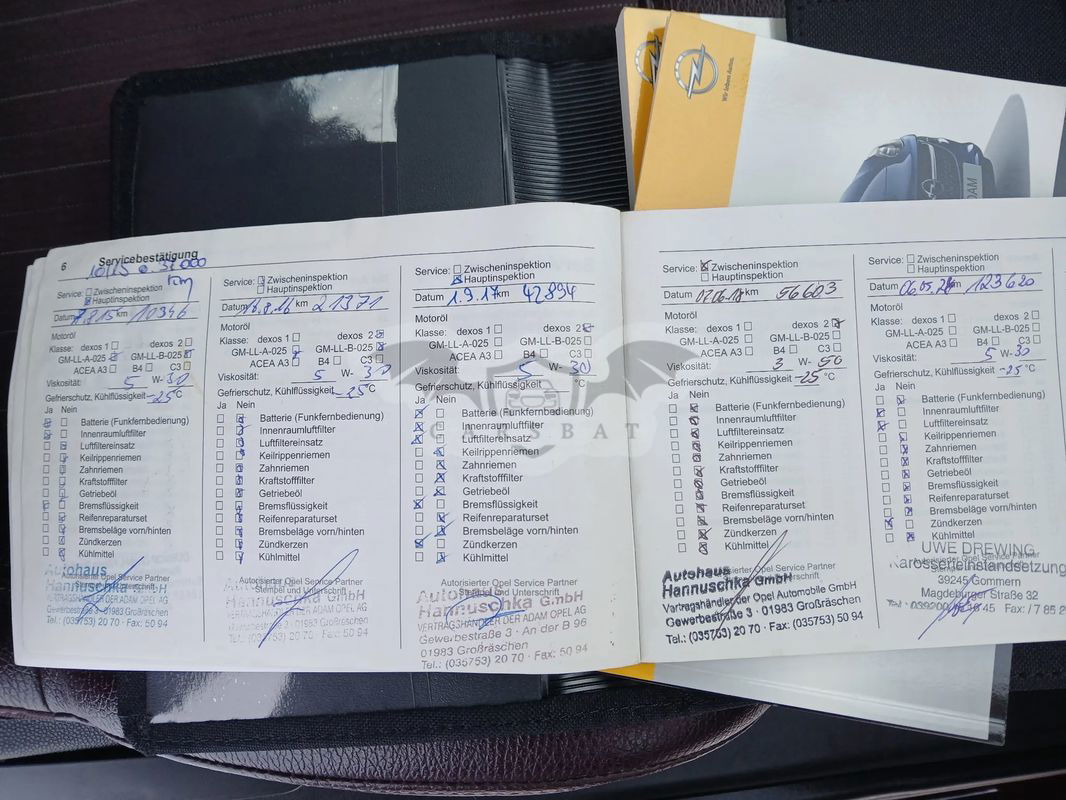 Wir leben Autos.
ADAM
6 Servicebestätigung
Service: Zwischeninspektion
Hauptinspektion
km
Datum 7.8.15 km 10346
Motoröl
Klasse: dexos 1 dexos 2
GM-LL-A-025 GM-LL-B-025
ACEA A3 B4 C3
Viskosität: 5 W- 30
Gefrierschutz, Kühlflüssigkeit -25 °C
Ja Nein
Batterie (Funkfernbedienung)
Innenraumluftfilter
Luftfiltereinsatz
Keilrippenriemen
Zahnriemen
Kraftstofffilter
Getriebeöl
Bremsflüssigkeit
Reifenreparaturset
Bremsbeläge vorn/hinten
Zündkerzen
Kühlmittel
Autorisierter Opel Service Partner
Stempel und Unterschrift
Autohaus
Hannuschka GmbH
VERTRAGSHÄNDLER DER ADAM OPEL AG
Gewerbestraße 3 · 01983 Großräschen
Tel.: (035753) 20 70 · Fax: 50 94
Service: Zwischeninspektion
Hauptinspektion
Datum 16.8.16 km 21371
Motoröl
Klasse: dexos 1 dexos 2
GM-LL-A-025 GM-LL-B-025
ACEA A3 B4 C3
Viskosität: 5 W- 30
Gefrierschutz, Kühlflüssigkeit -25 °C
Ja Nein
Batterie (Funkfernbedienung)
Innenraumluftfilter
Luftfiltereinsatz
Keilrippenriemen
Zahnriemen
Kraftstofffilter
Getriebeöl
Bremsflüssigkeit
Reifenreparaturset
Bremsbeläge vorn/hinten
Zündkerzen
Kühlmittel
Autorisierter Opel Service Partner
Stempel und Unterschrift
Hannuschka GmbH
VERTRAGSHÄNDLER DER ADAM OPEL AG
Gewerbestraße 3 · 01983 Großräschen
Tel.: (035753) 20 70 · Fax: 50 94
Service: Zwischeninspektion
Hauptinspektion
Datum 1.9.17 km 42894
Motoröl
Klasse: dexos 1 dexos 2
GM-LL-A-025 GM-LL-B-025
ACEA A3 B4 C3
Viskosität: 5 W- 30
Gefrierschutz, Kühlflüssigkeit °C
Ja Nein
Batterie (Funkfernbedienung)
Innenraumluftfilter
Luftfiltereinsatz
Keilrippenriemen
Zahnriemen
Kraftstofffilter
Getriebeöl
Bremsflüssigkeit
Reifenreparaturset
Bremsbeläge vorn/hinten
Zündkerzen
Kühlmittel
Autorisierter Opel Service Partner
Stempel und Unterschrift
Autohaus
Hannuschka G.m.b.H.
VERTRAGSHÄNDLER DER ADAM OPEL AG
Gewerbestraße 3 · An der B 96
01983 Großräschen
Tel.: (035753) 20 70 · Fax: 50 94
CARSBAT
Service: Zwischeninspektion
Hauptinspektion
Datum 07.06.18 km 56603
Motoröl
Klasse: dexos 1 dexos 2
GM-LL-A-025 GM-LL-B-025
ACEA A3 B4 C3
Viskosität: 3 W- 50
Gefrierschutz, Kühlflüssigkeit -25 °C
Ja Nein
Batterie (Funkfernbedienung)
Innenraumluftfilter
Luftfiltereinsatz
Keilrippenriemen
Zahnriemen
Kraftstofffilter
Getriebeöl
Bremsflüssigkeit
Reifenreparaturset
Bremsbeläge vorn/hinten
Zündkerzen
Kühlmittel
Autohaus
Hannuschka GmbH
Vertragshändler der Opel Automobile GmbH
Gewerbestraße 3 · 01983 Großräschen
Tel.: (035753) 20 70 · Fax: 50 94
Service: Zwischeninspektion
Hauptinspektion
Datum km 123620
Motoröl
Klasse: dexos 1 dexos 2
GM-LL-A-025 GM-LL-B-025
ACEA A3 B4 C3
Viskosität: 5 W- 30
Gefrierschutz, Kühlflüssigkeit -25 °C
Ja Nein
Batterie (Funkfernbedienung)
Innenraumluftfilter
Luftfiltereinsatz
Keilrippenriemen
Zahnriemen
Kraftstofffilter
Getriebeöl
Bremsflüssigkeit
Reifenreparaturset
Bremsbeläge vorn/hinten
Zündkerzen
Kühlmittel
UWE DREWING
Autorisierter Opel Service Partner
Karosserieinstandsetzung
39245 Gommern
Magdeburger Straße 32